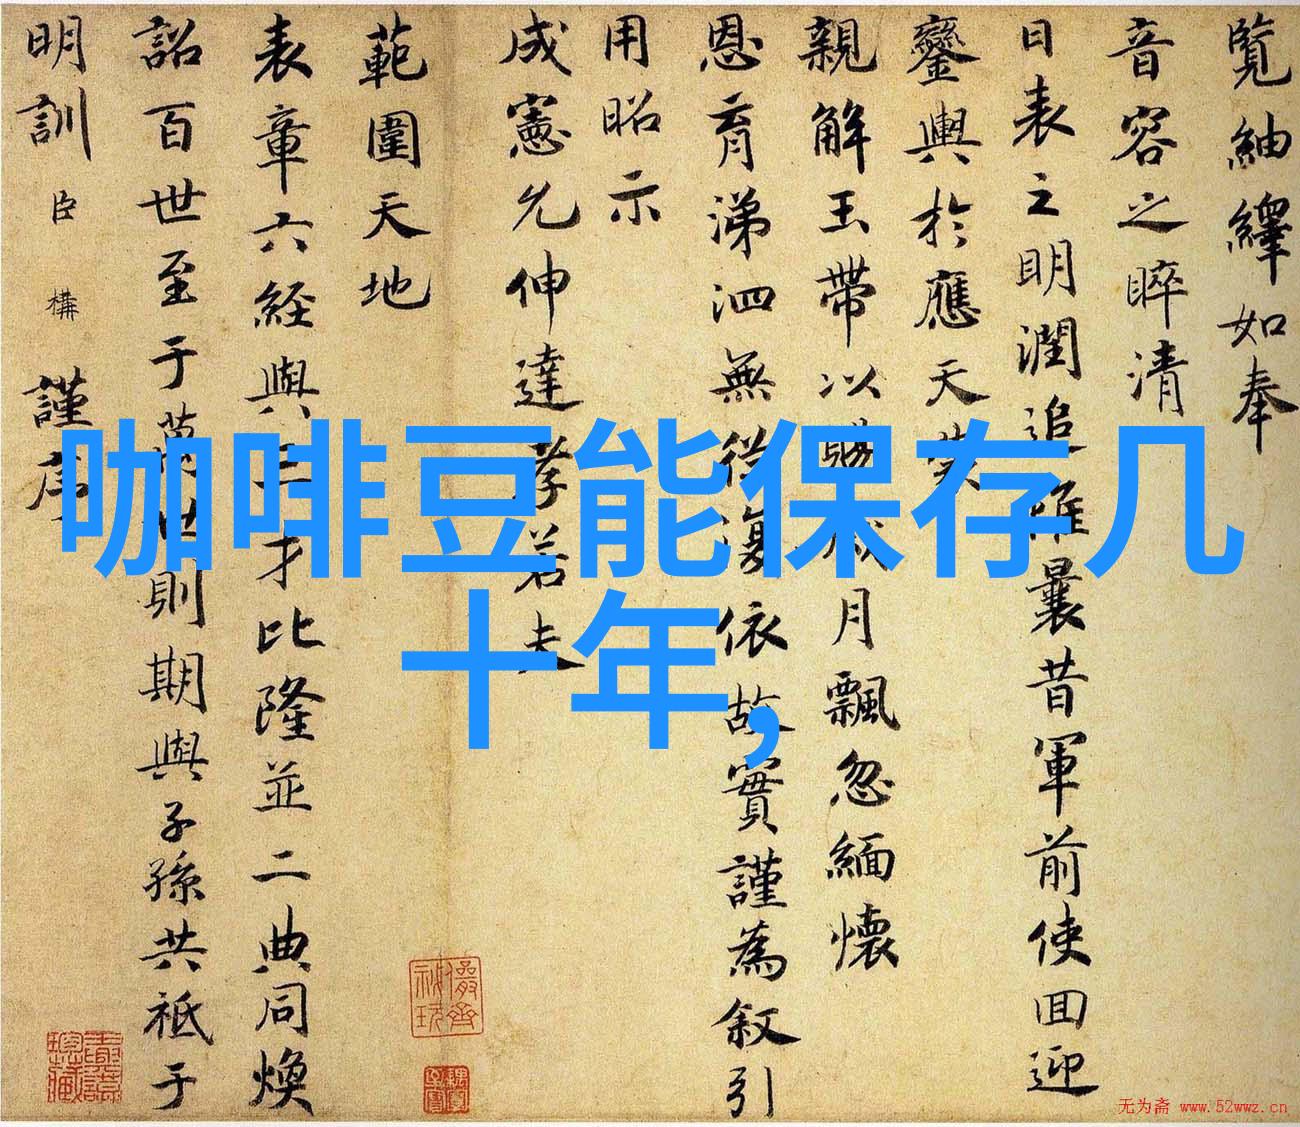 覽紬繹如奉
音容之睟清
日表之明潤追維曩昔軍前使囬迎
鑾輿於應天英
親解玉帶以賜歲月飄忽緬懷
恩育涕泗無從復依故實謹為叙引
用昭示
成憲允伸達孝若夫
範圍天地
表章六経與三才比隆並二典同煥
詔百世至于萬世則期與子孫共祇于
明訓臣構謹序
咖啡豆能保存几
十年,
无为斋 www.52wwz.cn